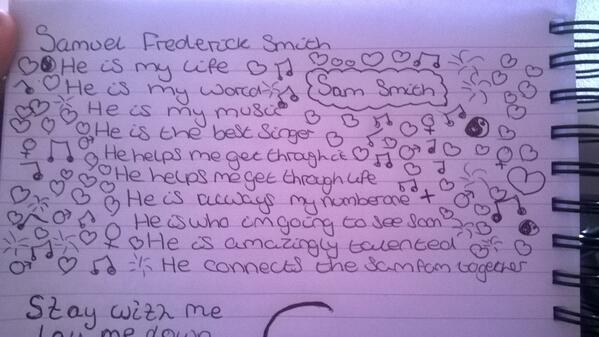 Samuel Frederick Smith
He is my life
Sam Smith
He is my world
He is my music
He is the best singer
He helps me get through it
He helps me get through life
He is always my numberone +
He is who im going to see soon
He is amazingly talented
He connects the samfam together
Stay with me
lay me down